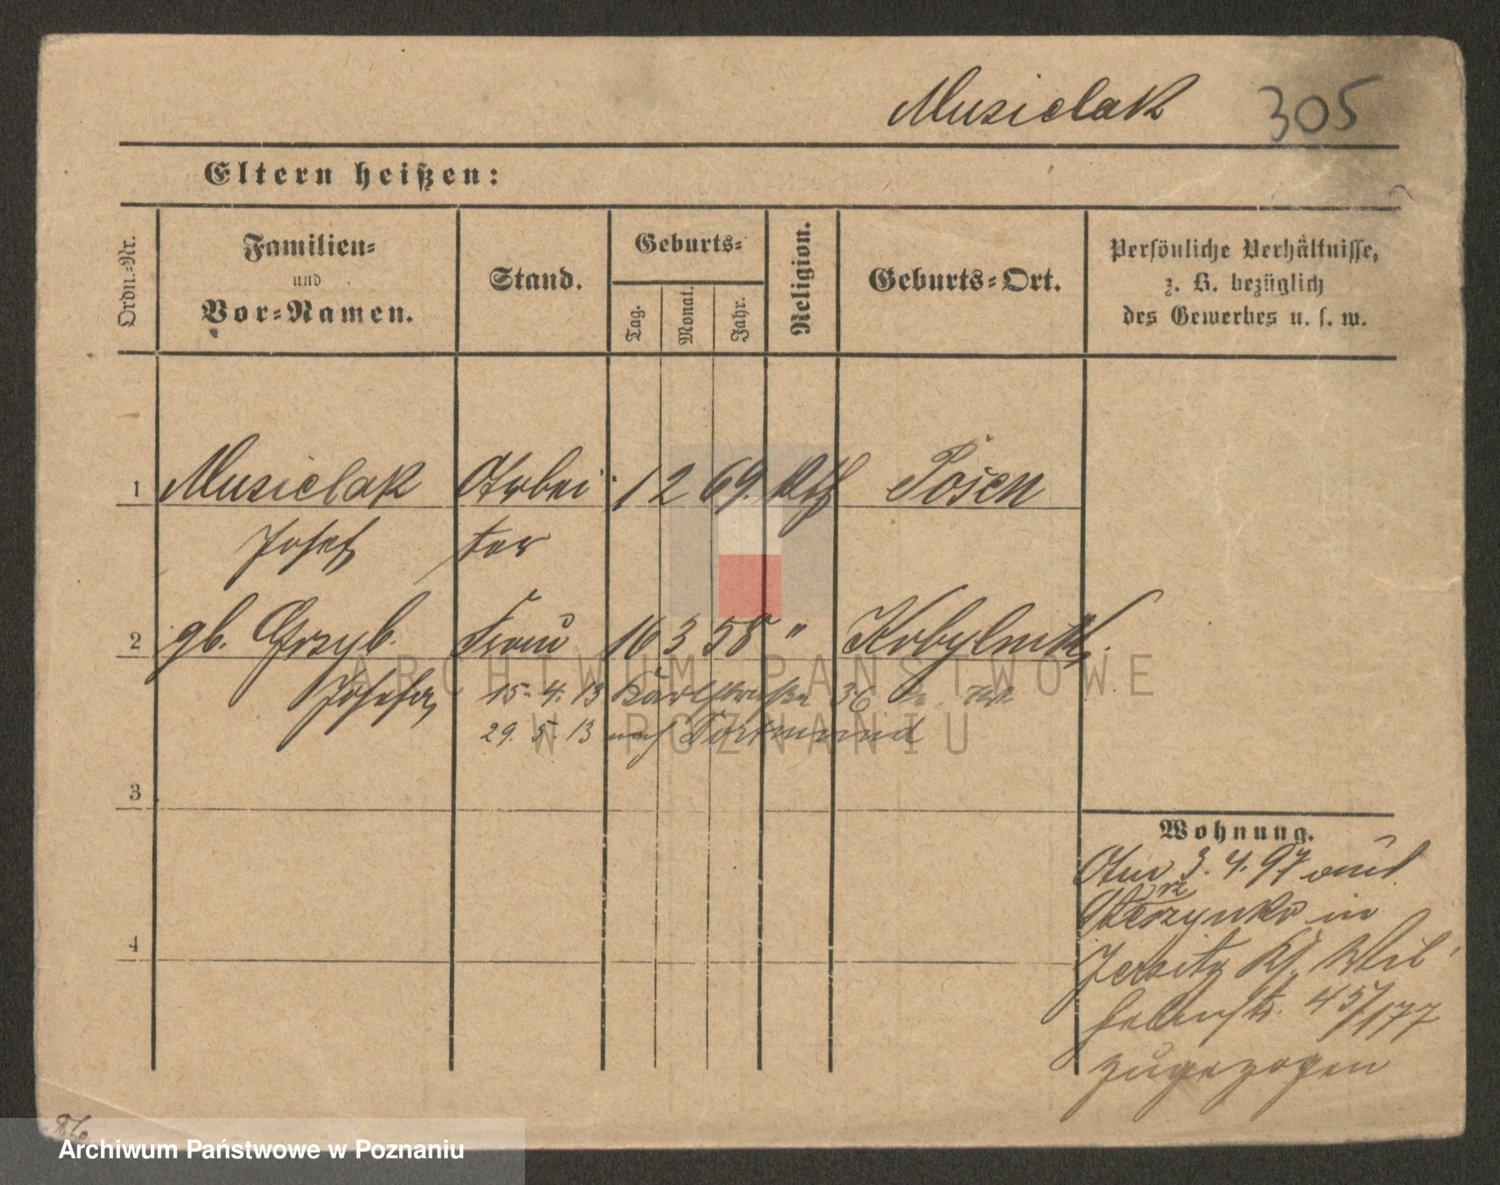 Musielak 305
Eltern heißen:
Ordn.-Nr.
Familien-
und
Vor-Namen.
Stand.
Geburts-
Tag.
Monat.
Jahr.
Religion.
Geburts-Ort.
Persönliche Verhältnisse,
z. B. bezüglich
des Gewerbes u. s. w.
1 Musielak Arbei 1 2 69. Kth Posen
Josef ter
2 gb. Grzyb. Frau 16 3 58 "
Josefa 15. 4. 13 Karlstraße 36
29. 5. 13 nach Dortmund
3
4
Wohnung.
Am 3. 4. 97 aus
in
Jersitz Kf. Wil
helmstr. 45/177
zugezogen
ARCHIWUM PAŃSTWOWE
W POZNANIU
Archiwum Państwowe w Poznaniu